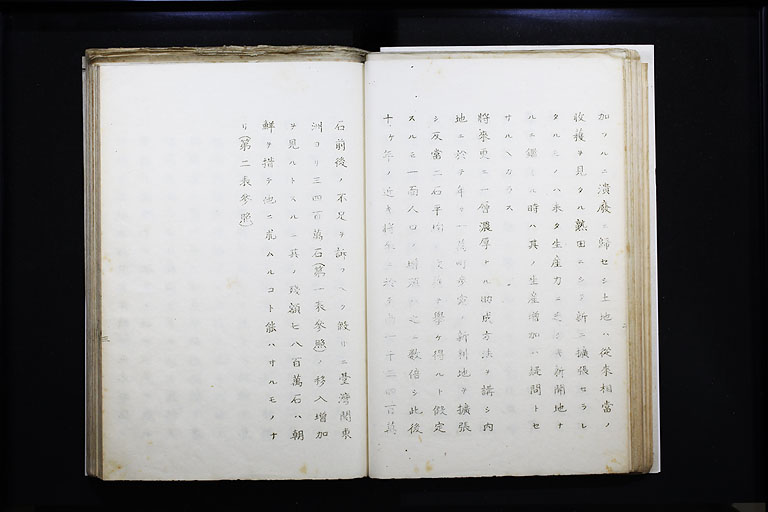 加フルニ潰廢ニ歸セシ土地ハ從來相當ノ
收穫ヲ見タル熟田ニシテ新ニ擴張セラレ
タルモノハ未タ生産力ニ乏シキ新開地ナ
ルニ鑑ミル時ハ其ノ生産増加ハ疑問トセ
サルヘカラス
將來更ニ一層濃厚ナル助成方法ヲ講シ内
地ニ於テ年々一萬町歩宛ノ新利地ヲ擴張
シ反當二石平均ノ收穫ヲ擧ケ得ルト假定
スルモ一面人口ノ増殖ハ之ニ數倍シ此後
十ケ年ノ近キ將來ニ於テ尚一千三四百萬
石前後ノ不足ヲ訴フヘク假リニ臺灣關東
洲ヨリ三四百萬石(第一表參照)ノ移入増加
ヲ見ルトスルモ其ノ殘額七八百萬石ハ朝
鮮ヲ措テ他ニ求ムルコト能ハサルモノナ
リ(第二表參照)
三
二